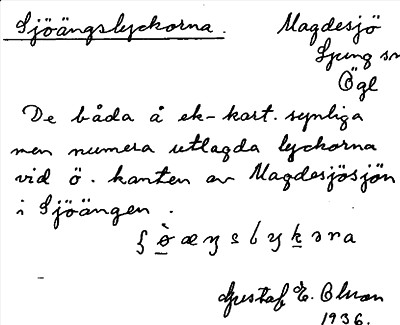 Sjöängslyckorna. Magdesjö
Ljung sn
Ögl
De båda å ek-kart. synliga
men numera utlagda lyckorna
vid ö. kanten av Magdesjösjön
i Sjöängen.
Gustaf E. Olson
1936.